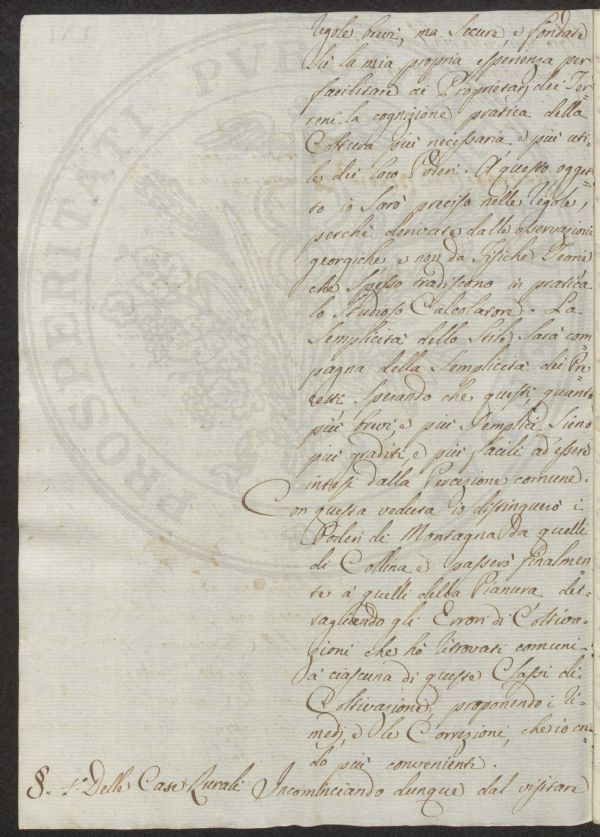 regole brevi, ma sicure, e fondate
sù la mia propria esperienza per
facilitare ai Proprietarj dei Ter=
reni la cognizione pratica della
Coltura più necessaria e più uti=
le dei loro Poderi. A questo ogget=
to io sarò preciso nelle regole,
perchè derivate dalle osservazioni
georgiche, e non da Fisiche Teorie
che spesso tradiscono in pratica
lo studioso Calcolatore. La
semplicità dello stile sarà com=
pagna della semplicità dei Pre=
cetti sperando che questi quanto
più brevi, e più semplici sieno
più graditi, e più facili ad essere
intesi dalla Percezione comune.
Con questa veduta io distinguerò i
Poderi di Montagna da quelli
di Collina e passerò finalmen=
te a quelli della Pianura det=
tagliando gli Errori di Coltiva=
zioni che hò ritrovati comuni
a ciascuna di queste Classi di
Coltivazione, proponendo i ri=
medj, e le Correzioni, che io cre=
do più convenienti.
§. 1.° Delle Case Rurali Incominciando dunque dal visitare
PROSPERITATI PVB